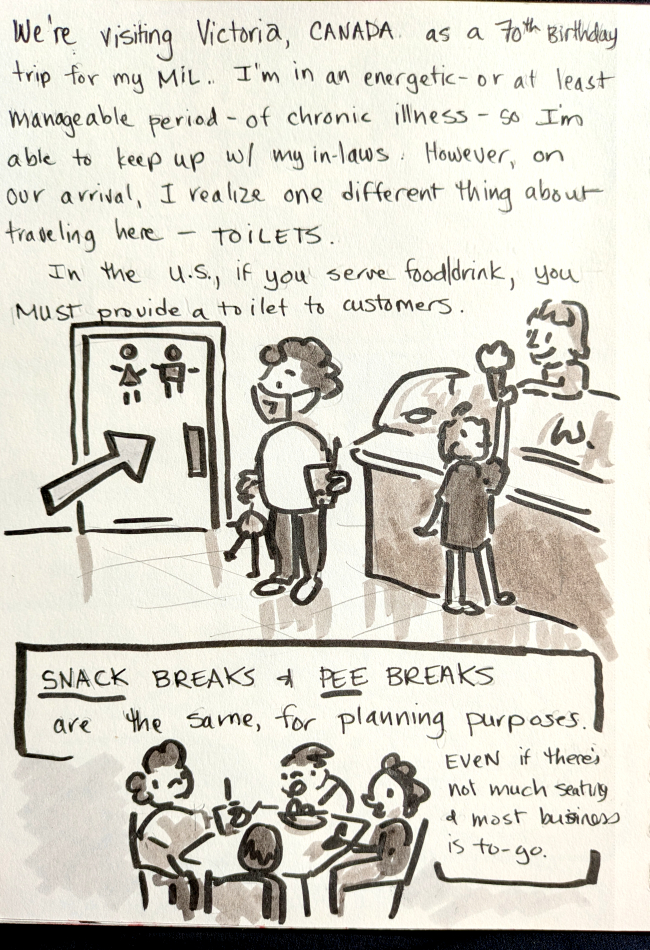 We're visiting Victoria, CANADA. as a 70th Birthday
trip for my MIL. I'm in an energetic - or at least
manageable period - of chronic illness - so I'm
able to keep up w/ my in-laws. However, on
our arrival, I realize one different thing about
traveling here — TOILETS.
In the U.S., if you serve food/drink, you
MUST provide a toilet to customers.
W.
SNACK BREAKS & PEE BREAKS
are the same, for planning purposes.
EVEN if there's
not much seating
& most business
is to-go.